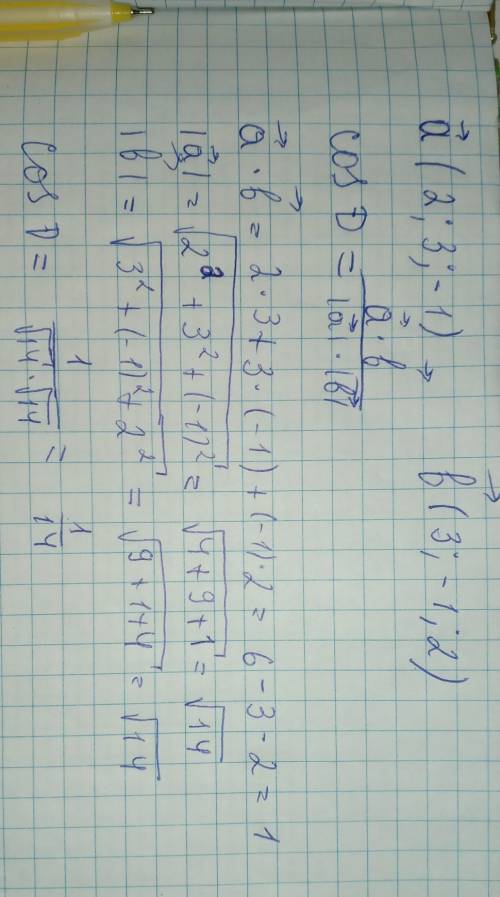 a⃗ (2; 3; -1)   b⃗ (3; -1; 2)
cos D = a⃗ · b⃗ / |a⃗| · |b⃗|
a⃗ · b⃗ = 2·3 + 3·(-1) + (-1)·2 = 6 - 3 - 2 = 1
|a⃗| = √2² + 3² + (-1)² = √4 + 9 + 1 = √14
|b⃗| = √3² + (-1)² + 2² = √9 + 1 + 4 = √14
cos D = 1 / √14 · √14 = 1/14